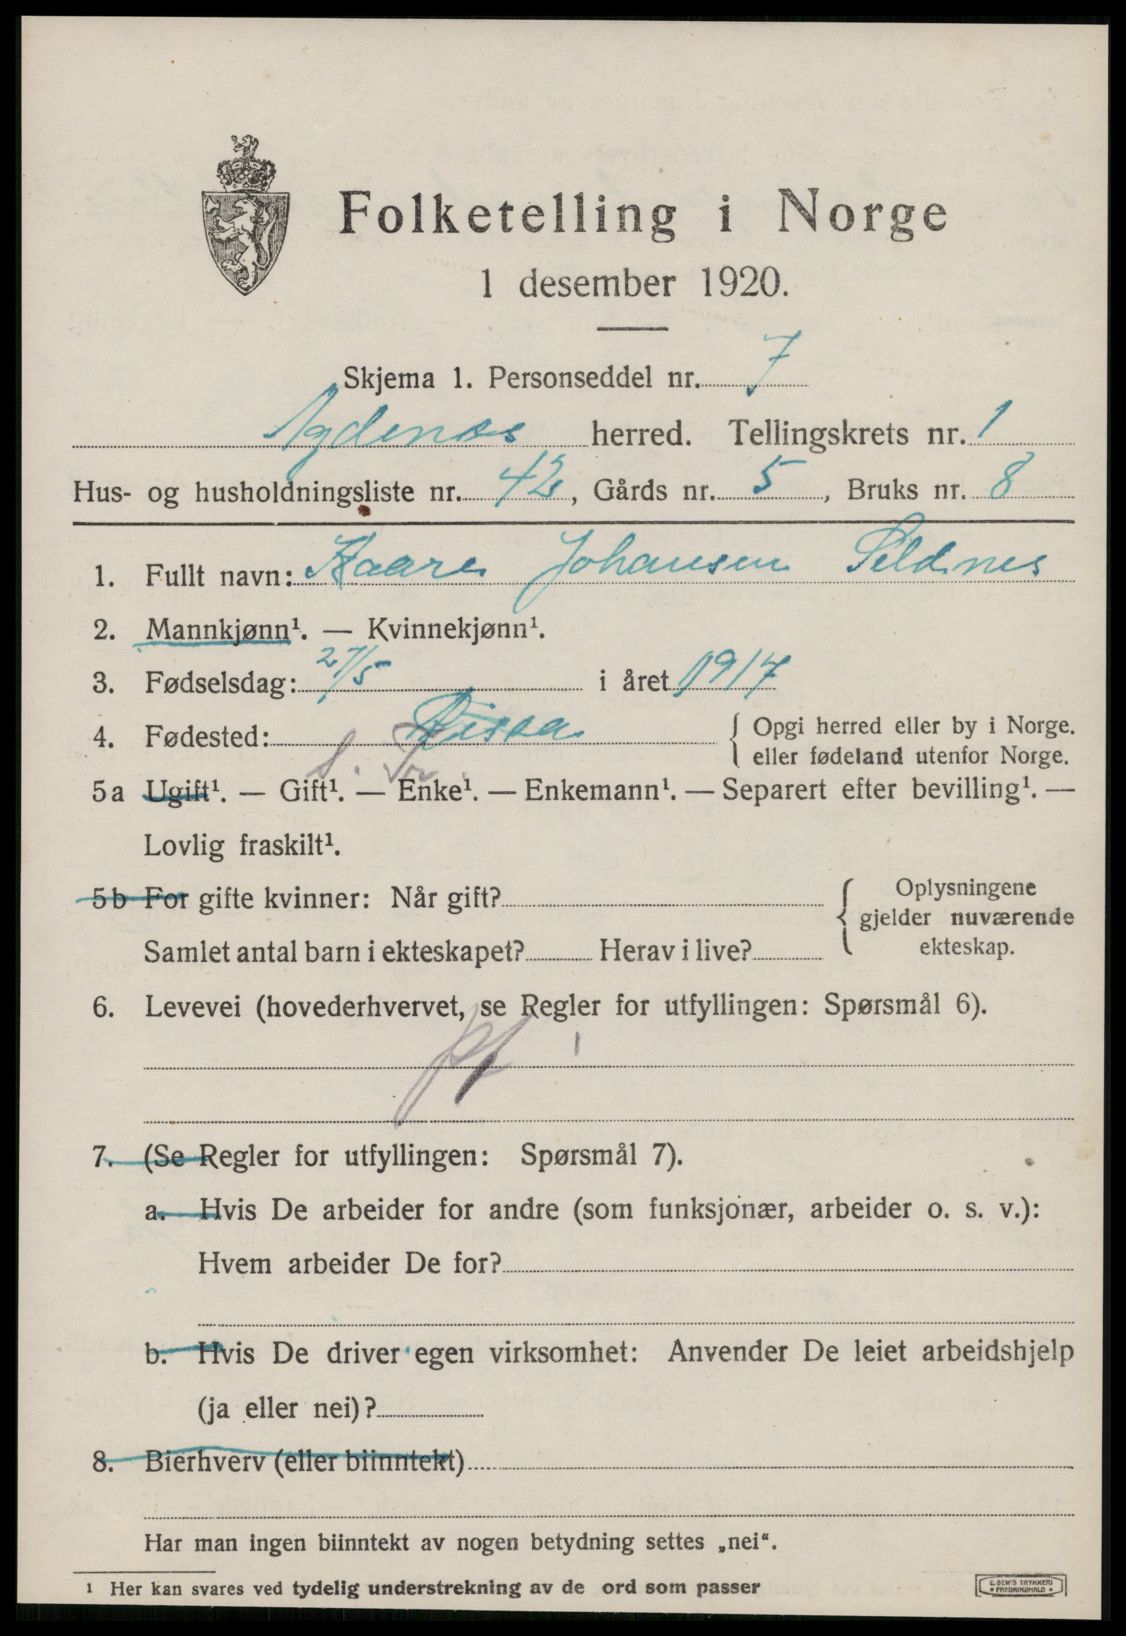 Folketelling i Norge
1 desember 1920.
Skjema 1. Personseddel nr. 7
Agdenes herred. Tellingskrets nr. 1
Hus- og husholdningsliste nr. 42, Gårds nr. 5, Bruks nr. 8
1. Fullt navn: Kaare Johansen Seldnes
2. Mannkjønn¹. — Kvinnekjønn¹.
3. Fødselsdag: 27/5 i året 1917
4. Fødested: Rissa { Opgi herred eller by i Norge.
eller fødeland utenfor Norge.
S. Tr.
5a Ugift¹. — Gift¹. — Enke¹. — Enkemann¹. — Separert efter bevilling¹. —
Lovlig fraskilt¹.
5b For gifte kvinner: Når gift? { Oplysningene
gjelder nuværende
ekteskap.
Samlet antal barn i ekteskapet? Herav i live?
6. Levevei (hovederhvervet, se Regler for utfyllingen: Spørsmål 6).
7. (Se Regler for utfyllingen: Spørsmål 7).
a. Hvis De arbeider for andre (som funksjonær, arbeider o. s. v.):
Hvem arbeider De for?
b. Hvis De driver egen virksomhet: Anvender De leiet arbeidshjelp
(ja eller nei)?
8. Bierhverv (eller biinntekt)
Har man ingen biinntekt av nogen betydning settes „nei“.
¹ Her kan svares ved tydelig understrekning av de ord som passer
E. SEM'S TRYKKERI
FREDRIKSHALD